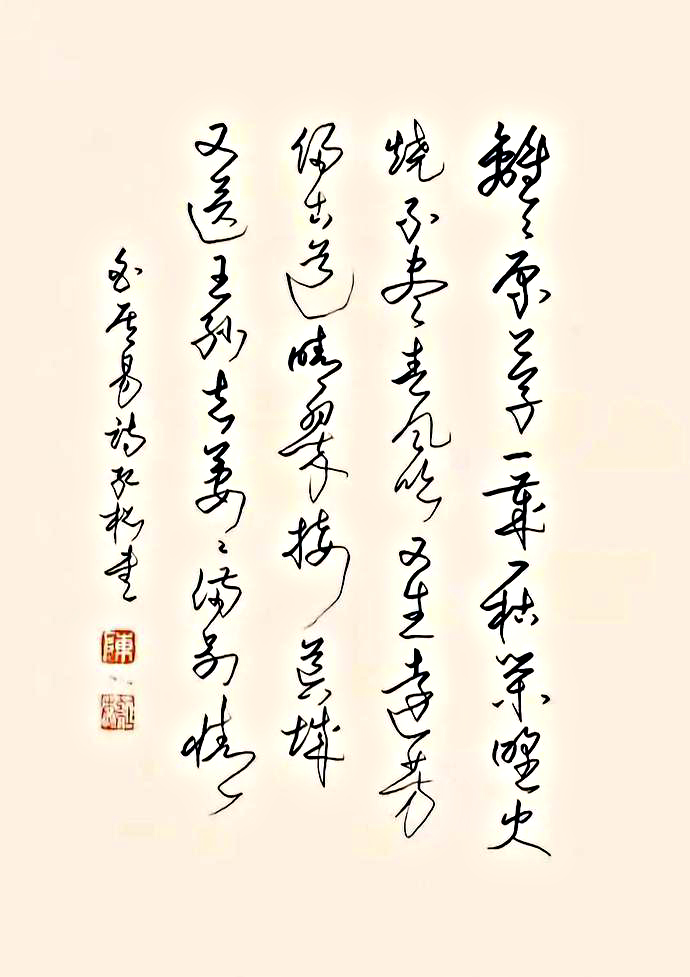 離〻原上草一歲一枯榮野火
燒不盡春風吹又生遠芳
侵古道晴翠接荒城
又送王孫去萋〻滿別情
白居易詩書
陳